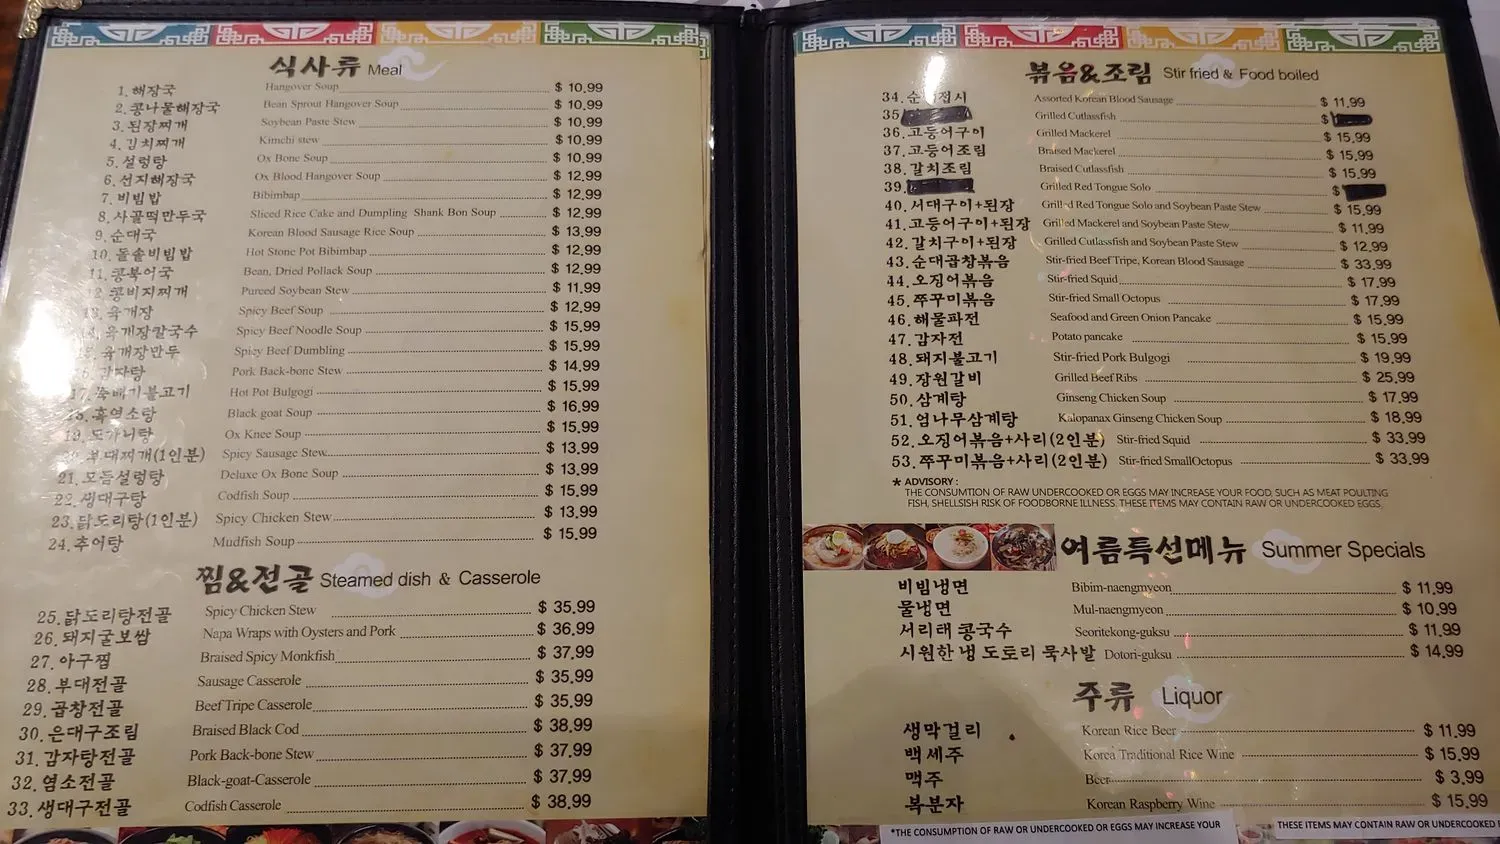 식사류 Meal
1. 해장국 Hangover Soup $ 10.99
2. 콩나물해장국 Bean Sprout Hangover Soup $ 10.99
3. 된장찌개 Soybean Paste Stew $ 10.99
4. 김치찌개 Kimchi stew $ 10.99
5. 설렁탕 Ox Bone Soup $ 10.99
6. 선지해장국 Ox Blood Hangover Soup $ 12.99
7. 비빔밥 Bibimbap $ 12.99
8. 사골떡만두국 Sliced Rice Cake and Dumpling Shank Bon Soup $ 12.99
9. 순대국 Korean Blood Sausage Rice Soup $ 13.99
10. 돌솥비빔밥 Hot Stone Pot Bibimbap $ 12.99
11. 콩북어국 Bean, Dried Pollack Soup $ 12.99
12. 콩비지찌개 Pureed Soybean Stew $ 11.99
13. 육개장 Spicy Beef Soup $ 12.99
14. 육개장칼국수 Spicy Beef Noodle Soup $ 15.99
15. 육개장만두 Spicy Beef Dumbling $ 15.99
16. 감자탕 Pork Back-bone Stew $ 14.99
17. 뚝배기불고기 Hot Pot Bulgogi $ 15.99
18. 흑염소탕 Black goat Soup $ 16.99
19. 도가니탕 Ox Knee Soup $ 15.99
20. 부대찌개(1인분) Spicy Sausage Stew $ 13.99
21. 모듬설렁탕 Deluxe Ox Bone Soup $ 13.99
22. 생대구탕 Codfish Soup $ 15.99
23. 닭도리탕(1인분) Spicy Chicken Stew $ 13.99
24. 추어탕 Mudfish Soup $ 15.99
찜&전골 Steamed dish & Casserole
25. 닭도리탕전골 Spicy Chicken Stew $ 35.99
26. 돼지굴보쌈 Napa Wraps with Oysters and Pork $ 36.99
27. 아구찜 Braised Spicy Monkfish $ 37.99
28. 부대전골 Sausage Casserole $ 35.99
29. 곱창전골 Beef Tripe Casserole $ 35.99
30. 은대구조림 Braised Black Cod $ 38.99
31. 감자탕전골 Pork Back-bone Stew $ 37.99
32. 염소전골 Black-goat-Casserole $ 37.99
33. 생대구전골 Codfish Casserole $ 38.99
볶음&조림 Stir fried & Food boiled
34. 순 접시 Assorted Korean Blood Sausage $ 11.99
35 Grilled Cutlassfish $
36. 고등어구이 Grilled Mackerel $ 15.99
37. 고등어조림 Braised Mackerel $ 15.99
38. 갈치조림 Braised Cutlassfish $ 15.99
39. Grilled Red Tongue Solo $
40. 서대구이+된장 Grilled Red Tongue Solo and Soybean Paste Stew $ 15.99
41. 고등어구이+된장 Grilled Mackerel and Soybean Paste Stew $ 11.99
42. 갈치구이+된장 Grilled Cutlassfish and Soybean Paste Stew $ 12.99
43. 순대곱창볶음 Stir-fried Beef Tripe, Korean Blood Sausage $ 33.99
44. 오징어볶음 Stir-fried Squid $ 17.99
45. 쭈꾸미볶음 Stir-fried Small Octopus $ 17.99
46. 해물파전 Seafood and Green Onion Pancake $ 15.99
47. 감자전 Potato pancake $ 15.99
48. 돼지불고기 Stir-fried Pork Bulgogi $ 19.99
49. 장원갈비 Grilled Beef Ribs $ 25.99
50. 삼계탕 Ginseng Chicken Soup $ 17.99
51. 엄나무삼계탕 Kalopanax Ginseng Chicken Soup $ 18.99
52. 오징어볶음+사리(2인분) Stir-fried Squid $ 33.99
53. 쭈꾸미볶음+사리(2인분) Stir-fried SmallOctopus $ 33.99
* ADVISORY :
THE CONSUMTION OF RAW UNDERCOOKED OR EGGS MAY INCREASE YOUR FOOD, SUCH AS MEAT POULTING
FISH, SHELLSISH RISK OF FOODBORNE ILLNESS. THESE ITEMS MAY CONTAIN RAW OR UNDERCOOKED EGGS
여름특선메뉴 Summer Specials
비빔냉면 Bibim-naengmyeon $ 11.99
물냉면 Mul-naengmyeon $ 10.99
서리태 콩국수 Seoritekong-guksu $ 11.99
시원한 냉 도토리 묵사발 Dotori-guksu $ 14.99
주류 Liquor
생막걸리 Korean Rice Beer $ 11.99
백세주 Korea Traditional Rice Wine $ 15.99
맥주 Beer $ 3.99
복분자 Korean Raspberry Wine $ 15.99
*THE CONSUMPTION OF RAW OR UNDERCOOKED OR EGGS MAY INCREASE YOUR THESE ITEMS MAY CONTAIN RAW OR UNDERCOOKED